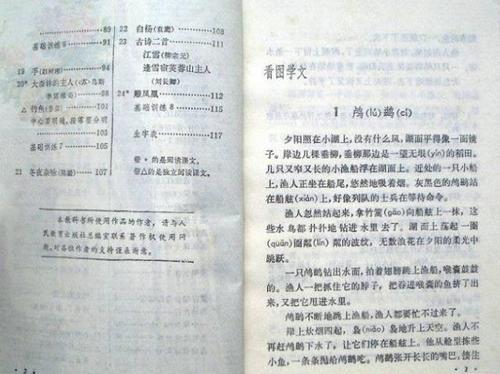 89
基础训练 5 91
19 手
20* 大森林的主人
中心要明确,段落要分明
基础训练 7 105
21 冬夜杂咏 107
22 白杨(袁鹰) 108
23 古诗二首 111
江雪(柳宗元)
逢雪宿芙蓉山主人
(刘长卿)
24* 雕凤凰 112
基础训练 8 115
生字表 117
带*的是阅读课文。
带△的是独立阅读课文。
本教科书所使用作品的作者,请与人
民教育出版社总编室联系著作权使用问
题,对各位作者的支持谨表谢意。
· 2 ·
看图学文
1 鸬(lú)鹚(cí)
夕阳照在小湖上,没有什么风,湖面平得像一面镜
子。岸边几棵垂柳,垂柳那边是一望无垠(yín)的稻田。
几只又窄又长的小渔船浮在湖面上。近处的一只小船
上,渔人正坐在船尾,悠然地吸着烟。灰黑色的鸬鹚站
在船舷(xián)上,好像列队的士兵在等待命令。
渔人忽然站起来,拿竹篙(gāo)向船舷上一抹,这
些水鸟都扑扑地钻进水里去了。湖面上荡起一圈
(quān)圈粼(lín)粼的波纹,无数浪花在夕阳的柔光中
跳跃。
一只鸬鹚钻出水面,拍着翅膀跳上渔船,喉囊鼓鼓
的。渔人一把抓住它的脖子,把吞进喉囊的鱼挤了出
来,又把它甩进水里。
鸬鹚不断地跳上渔船,渔人都要忙不过来了。
岸上炊烟四起,袅(niǎo)袅地升上天空。渔人不
再赶鸬鹚下水了。让它们停在船舷上。他从舱里拣些
小鱼,一条条抛给鸬鹚吃。鸬鹚张开长长的嘴巴,接住